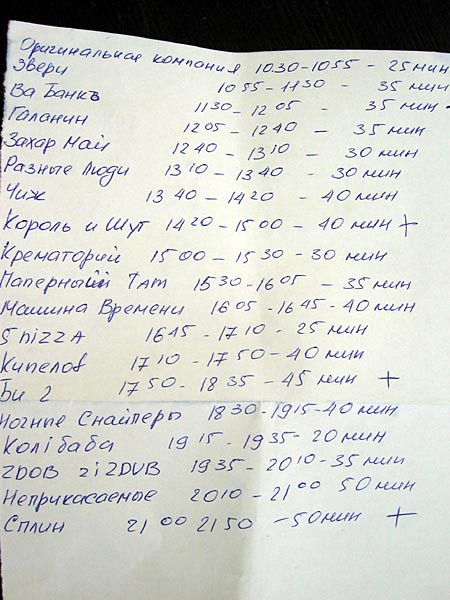 Оригинальная компания 10 30 - 10 55 - 25 мин
Звери 10 55 - 11 30 - 35 мин
Ва Банкъ 11 30 - 12 05 - 35 мин
Галанин 12 05 - 12 40 - 35 мин
Захар Май 12 40 - 13 10 - 30 мин
Разные Люди 13 10 - 13 40 - 30 мин
Чиж 13 40 - 14 20 - 40 мин
Король и Шут 14 20 - 15 00 - 40 мин +
Крематорий 15 00 - 15 30 - 30 мин
Паперный Там 15 30 - 16 05 - 35 мин
Машина Времени 16 05 - 16 45 - 40 мин
5'nizzA 16 45 - 17 10 - 25 мин
Кипелов 17 10 - 17 50 - 40 мин
Би 2 17 50 - 18 35 - 45 мин +
Ночные Снайперы 18 30 - 19 15 - 40 мин
Колiбаба 19 15 - 19 35 - 20 мин
ZDOB zi ZDUB 19 35 - 20 10 - 35 мин
Неприкасаемые 20 10 - 21 00 50 мин
Сплин 21 00 21 50 - 50 мин +